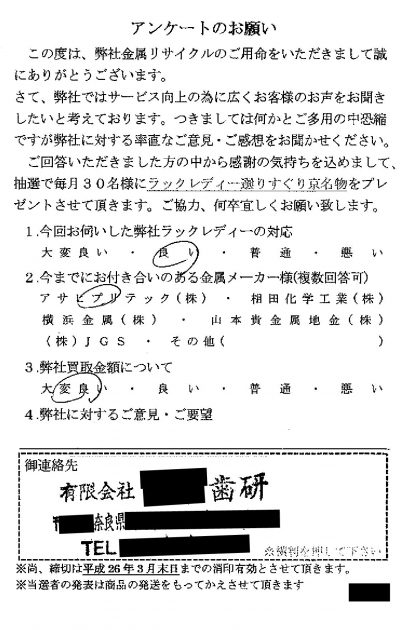 アンケートのお願い
この度は、弊社金属リサイクルのご用命をいただきまして誠
にありがとうございます。
さて、弊社ではサービス向上の為に広くお客様のお声をお聞き
したいと考えております。つきましては何かとご多用の中恐縮
ですが弊社に対する率直なご意見・ご感想をお聞かせください。
ご回答いただきました方の中から感謝の気持ちを込めまして、
抽選で毎月30名様にラックレディー選りすぐり京名物をプレ
ゼントさせて頂きます。ご協力、何卒宜しくお願い致します。
1.今回お伺いした弊社ラックレディーの対応
大変良い ・ 良い ・ 普通 ・ 悪い
2.今までにお付き合いのある金属メーカー様(複数回答可)
アサヒプリテック(株) ・ 相田化学工業(株)
横浜金属(株) ・ 山本貴金属地金(株)
(株)JGS ・ その他( )
3.弊社買取金額について
大変良い ・ 良い ・ 普通 ・ 悪い
4.弊社に対するご意見・ご要望
御連絡先
有限会社 歯研
〒 奈良県
TEL
※横判を押して下さい
※尚、締切は平成26年3月末日までの消印有効とさせて頂きます。
※当選者の発表は商品の発送をもってかえさせて頂きます